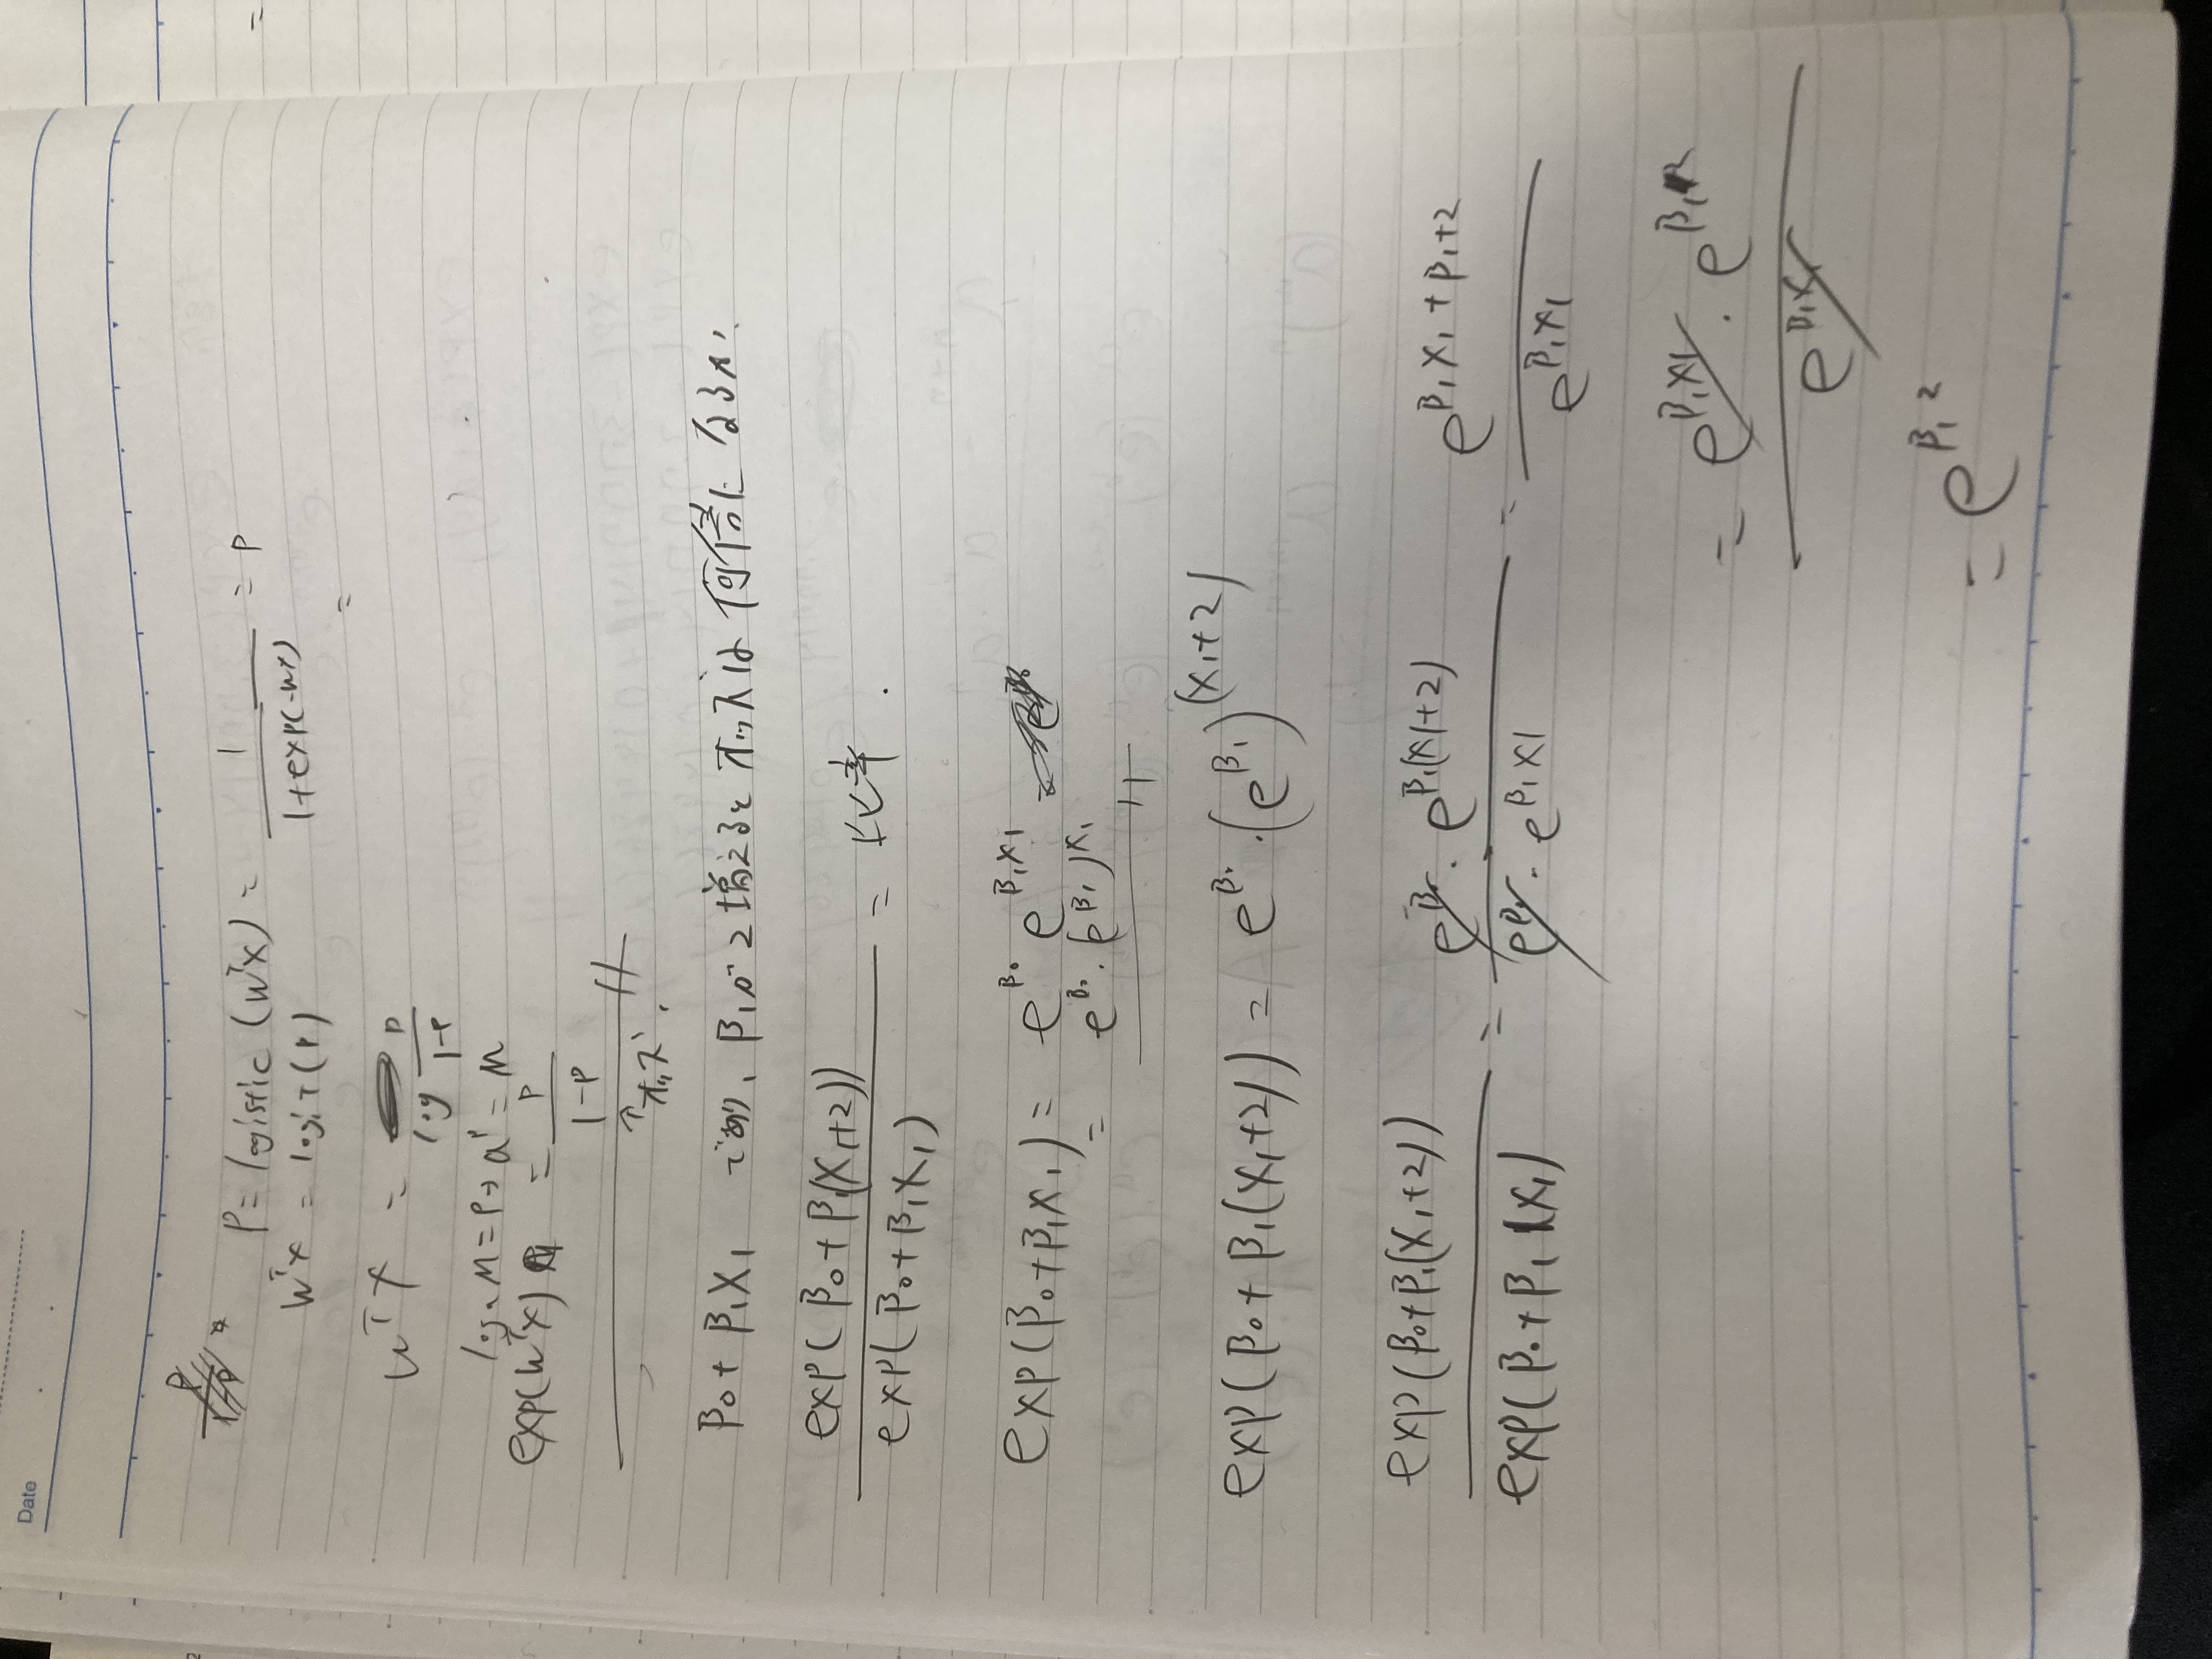 Date
P = logistic (wᵀx) = 1/(1+exp(-wx)) = P
wᵀx = logit(P)
=
wᵀx = log P/(1-P)
logₐ M = P → aᴾ = M
exp(wᵀx) = P/(1-P)
↑オッズ.
β₀ + β₁X₁ であり、β₁が2増えるとオッズは何倍になるか.
exp(β₀+β₁(X₁+2)) / exp(β₀+β₁X₁) = 比率.
exp(β₀+β₁X₁) = e^β₀ e^β₁X₁
= e^β₀・(e^β₁)^X₁
exp(β₀+β₁(X₁+2)) = e^β₀・(e^β₁)^(X₁+2)
exp(β₀+β₁(X₁+2)) / exp(β₀+β₁X₁) = e^β₀・e^β₁(X₁+2) / e^β₀・e^β₁X₁ = e^β₁X₁+β₁+2 / e^β₁X₁
= e^β₁X₁・e^β₁2 / e^β₁X₁
= e^β₁2